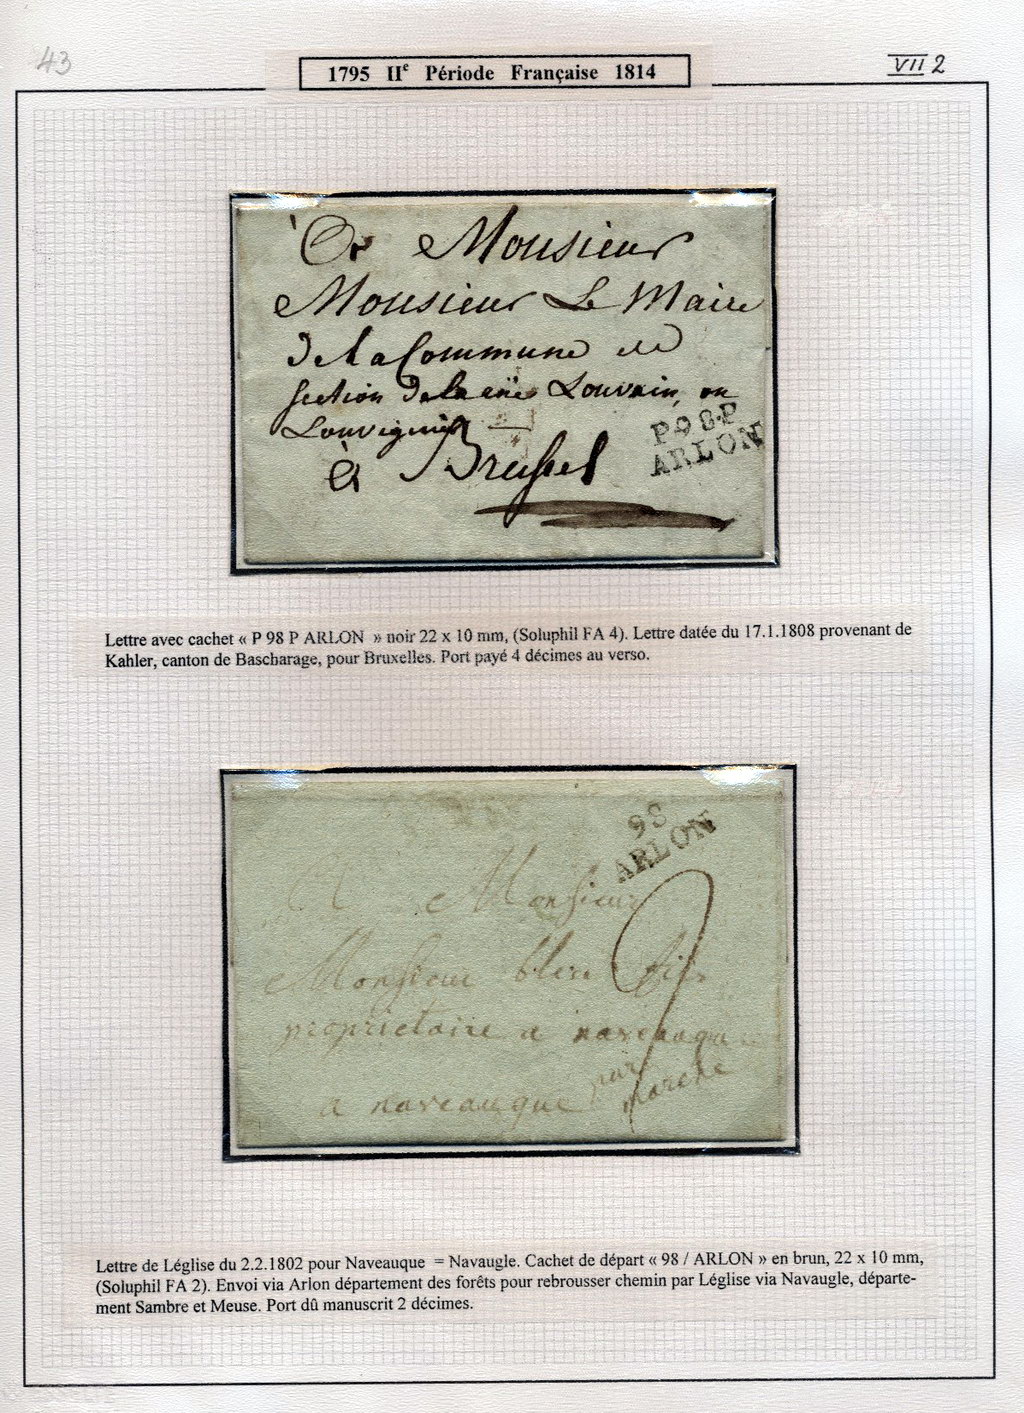 43
1795 IIe Période Française 1814
VII 2
à Monsieur
Monsieur Le Maire
de la Commune
Section de la Louvain, ou
à Brussel
P98P
ARLON
Lettre avec cachet « P 98 P ARLON » noir 22 x 10 mm, (Soluphil FA 4). Lettre datée du 17.1.1808 provenant de
Kahler, canton de Bascharage, pour Bruxelles. Port payé 4 décimes au verso.
98
ARLON
A Monsieur
Monsieur fils
2
propriétaire a naveauque
a naveauque par
marche
Lettre de Léglise du 2.2.1802 pour Naveauque = Navaugle. Cachet de départ « 98 / ARLON » en brun, 22 x 10 mm,
(Soluphil FA 2). Envoi via Arlon département des forêts pour rebrousser chemin par Léglise via Navaugle, départe-
ment Sambre et Meuse. Port dû manuscrit 2 décimes.